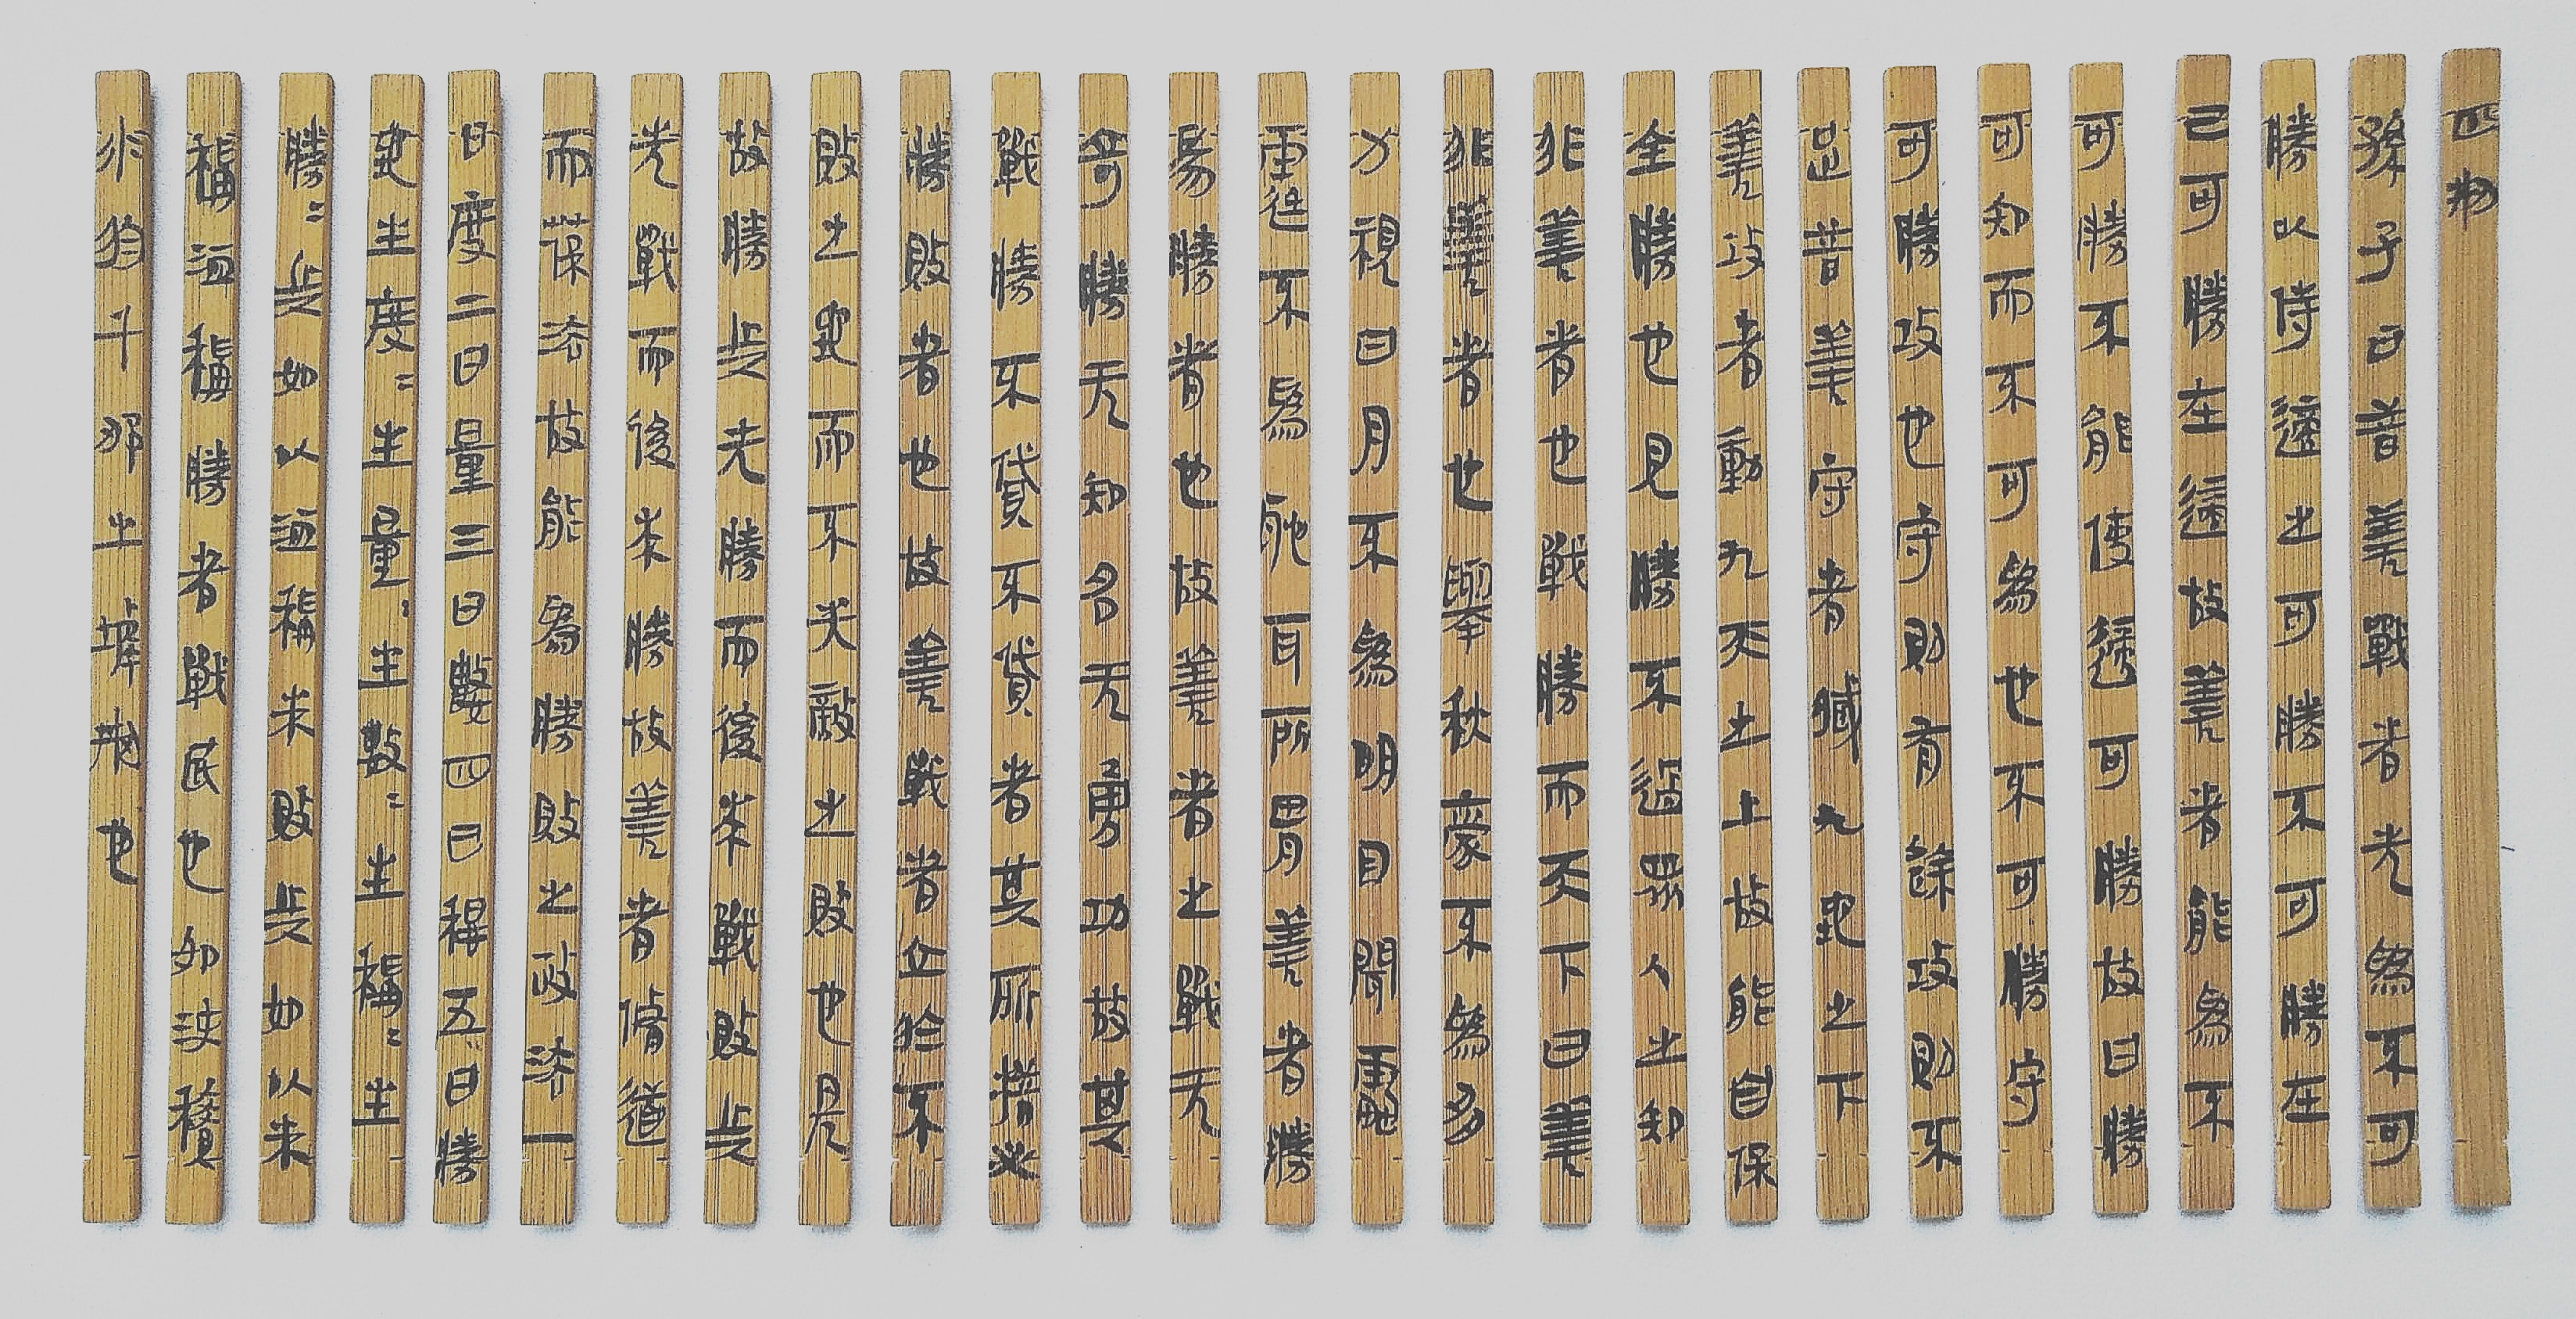 四刑
孫子曰昔善戰者先為不可
勝以侍適之可勝不可勝在
己可勝在適故善者能為不
可勝不能使適可勝故曰勝
可知而不可為也不可勝守
可勝攻也守則有餘攻則不
足昔善守者臧九地之下
善攻者動九天之上故能自保
全勝也見勝不過眾人之知
非善者也戰勝而天下曰善
非善者也舉秋豪不為多
力視日月不為明目聞
雷霆不為耳所胃善者勝
易勝者也故善者之戰无
奇勝无知名无勇功故其
戰勝不貸不貸者其所措必
勝敗者也故善戰者立於不
敗之地而不失敵之敗也是
故勝兵先勝而後求戰敗兵
先戰而後求勝故善者脩道
而保法故能為勝敗之政法一
曰度二曰量三曰數四曰稱五曰勝
地生度=生量=生數=生稱=生
勝=兵如以洫稱朱敗兵如以朱
稱洫稱勝者戰民也如決積
水於千那之刑也